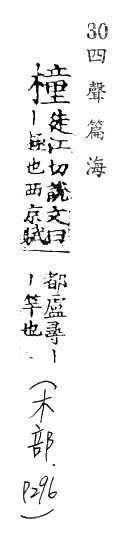 30 四聲篇海
橦
徒江切說文曰
｜也西京賦
都盧尋｜
｜竿也
(木部. P296)